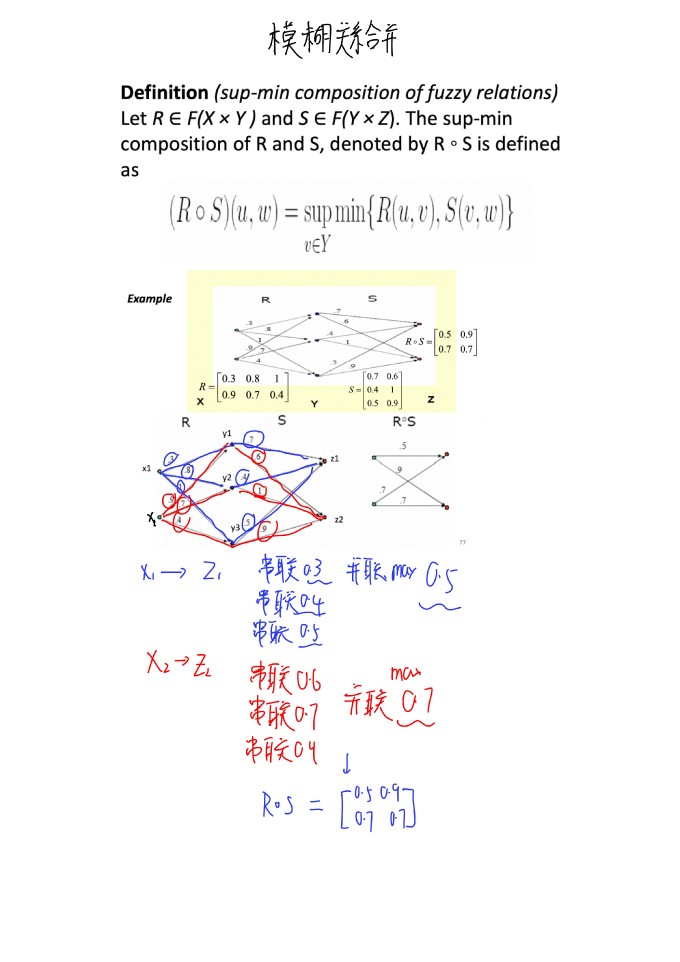 模糊关系合并
Definition (sup-min composition of fuzzy relations)
Let R ∈ F(X × Y ) and S ∈ F(Y × Z). The sup-min
composition of R and S, denoted by R ∘ S is defined
as
(R ∘ S)(u, w) = sup min{R(u, v), S(v, w)}
v∈Y
Example
R S
.3 .8 1 .9 .7 .4 .7 .6 .4 1 .5 .9
R∘S = [0.5 0.9
0.7 0.7]
R = [0.3 0.8 1
0.9 0.7 0.4]
S = [0.7 0.6
0.4 1
0.5 0.9]
X Y Z
R S R∘S
y1 .7 .5
.3 .6 z1
x1 .8 y2 .4 .9
1 1 .7
.9 .7
.4 y3 .5 .9 z2 .7
77
X₁ → Z₁ 串联 0.3 并联 max 0.5
串联 0.4
串联 0.5
X₂ → Z₂ 串联 0.6 max
串联 0.7 并联 0.7
串联 0.4
↓
R∘S = [0.5 0.9
0.7 0.7]